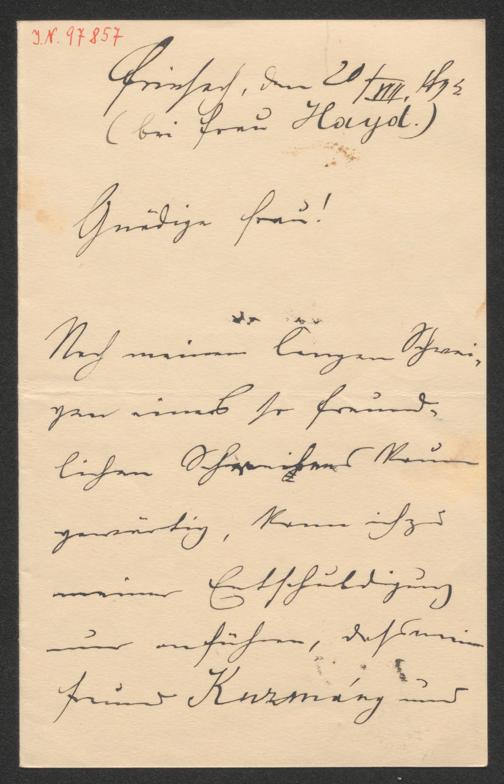 I.N. 97857
Friesach, den 20/VIII. 1892
(bei Frau Hayd.)
Gnädige Frau!
Nach meinem langen Schwei-
gen eines so freund-
lichen Schreibens kaum
gewärtig, kann ich zu
meiner Entschuldigung
nur anführen, daß mein
Freund Kuzmány und